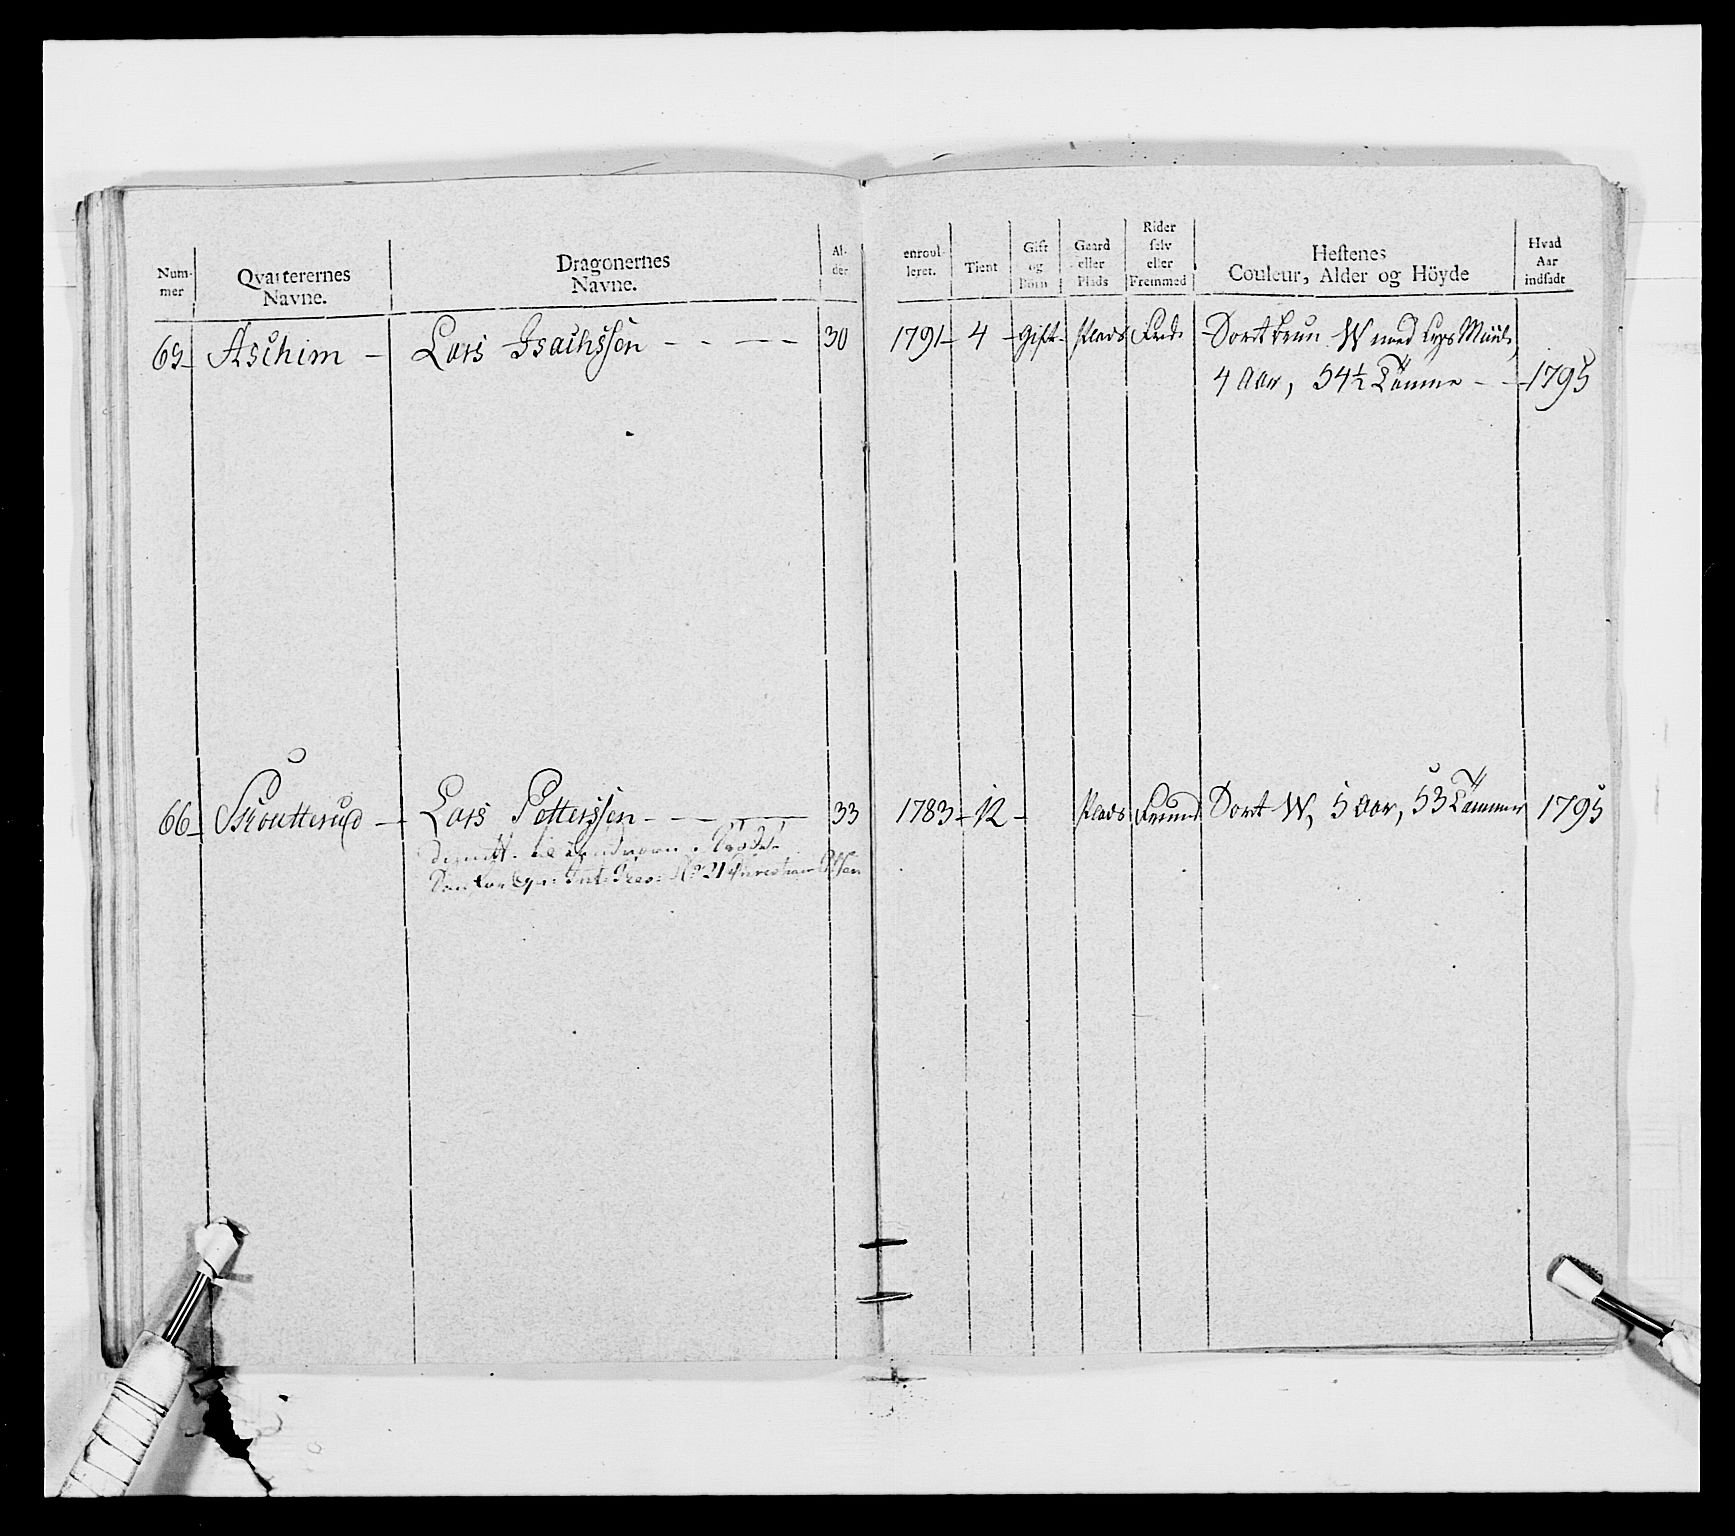 Num-
mer
Qvarterernes
Navne.
Dragonernes
Navne.
Al-
der
enroul-
leret.
Tient
Gift
og
Börn
Gaard
eller
Plads
Rider
selv
eller
Fremmed
Hestenes
Couleur, Alder og Höyde
Hvad
Aar
indsadt
65 Aschim - Lars Isachssen - - - - 30 1791 - 4 - Gift - Plads Fred: Dort brun W med Lys Muul,
4 Aar, 54½ Tomme - - 1795
66 Lars Petterssen - - - 33 1783 - 12 - Plads Fremd Dort W, 5 Aar, 53 Tommer 1795
No 21 Christian